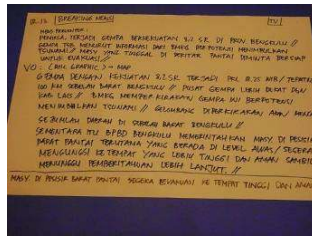 BREAKING NEWS
PEMIRSA, TERJADI GEMPA BERKEKUATAN 8,2 SR DI PROV. BENGKULU //
GEMPA TSB MENURUT INFORMASI DARI BMKG BERPOTENSI MENIMBULKAN
TSUNAMI // MASY YANG TINGGAL DI SEKITAR PANTAI DIMINTA BERSIAP
UNTUK EVAKUASI //
VO : GRAPHIC MAP
GEMPA DENGAN KEKUATAN 8.2 SR TERJADI PKL 8.25 WIB / TEPATNYA
100 KM SEBELAH BARAT BENGKULU // PUSAT GEMPA LEBIH DEKAT DGN
KAB // BMKG MEMPERKIRAKAN GEMPA INI BERPOTENSI
MENIMBULKAN TSUNAMI // GELOMBANG DIPERKIRAKAN AKAN
SEJUMLAH DAERAH DI SEBELAH BARAT BENGKULU //
SEMENTARA ITU BPBD BENGKULU MEMERINTAHKAN MASY DI PESISIR
BARAT PANTAI TERUTAMA YANG BERADA DI LEVEL AWAS / SEGERA
MENGUNGSI KE TEMPAT YANG LEBIH TINGGI DAN AMAN SAMBIL
MENUNGGU PEMBERITAHUAN LEBIH LANJUT //
MASY DI PESISIR BARAT PANTAI SEGERA EVAKUASI KE TEMPAT TINGGI DAN AMAN